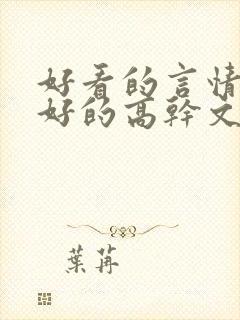 好看的言情
好的高幹文
葉苒